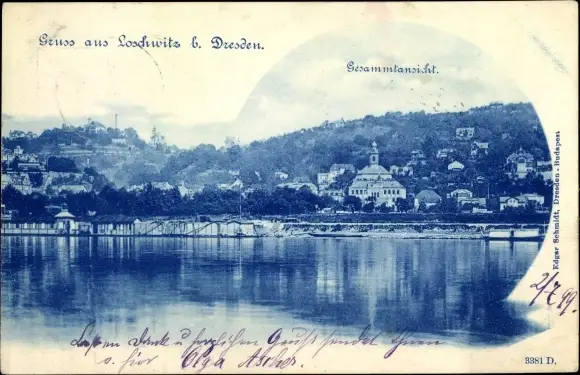 Gruss aus Loschwitz b. Dresden.
Gesammtansicht.
Edgar Schmidt, Dresden-Budapest
2/7 99.
Dank u herzlichen Gruß sendet Ihnen
v. hier Olga Ascher.
3381 D.